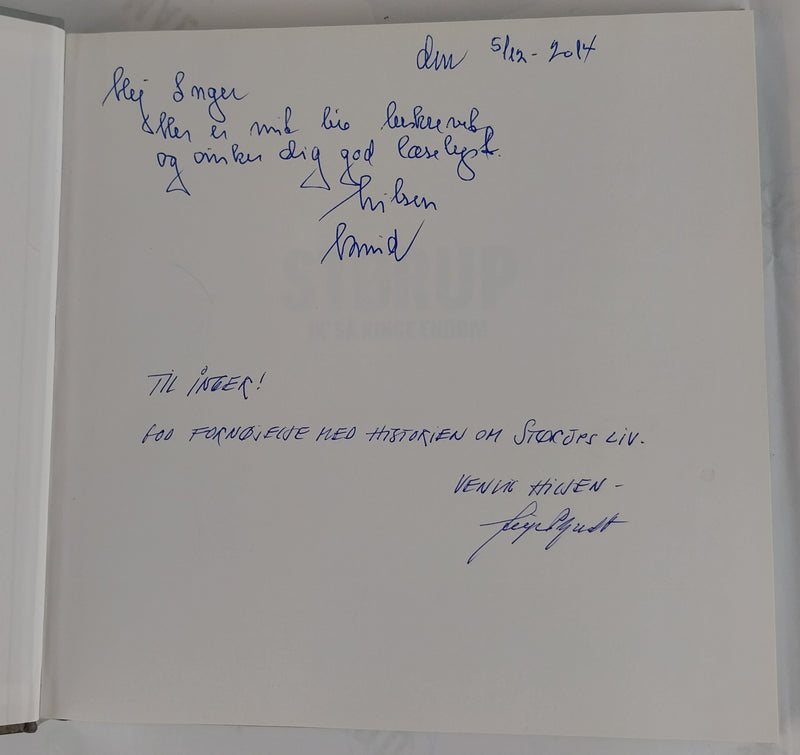 den 5/12-2014
Hej Inger
Her er mit liv beskrevet,
og ønsker dig god læselyst.
hilsen
TIL INGER!
GOD FORNØJELSE MED HISTORIEN OM STØRUPS LIV.
VENLIG HILSEN -